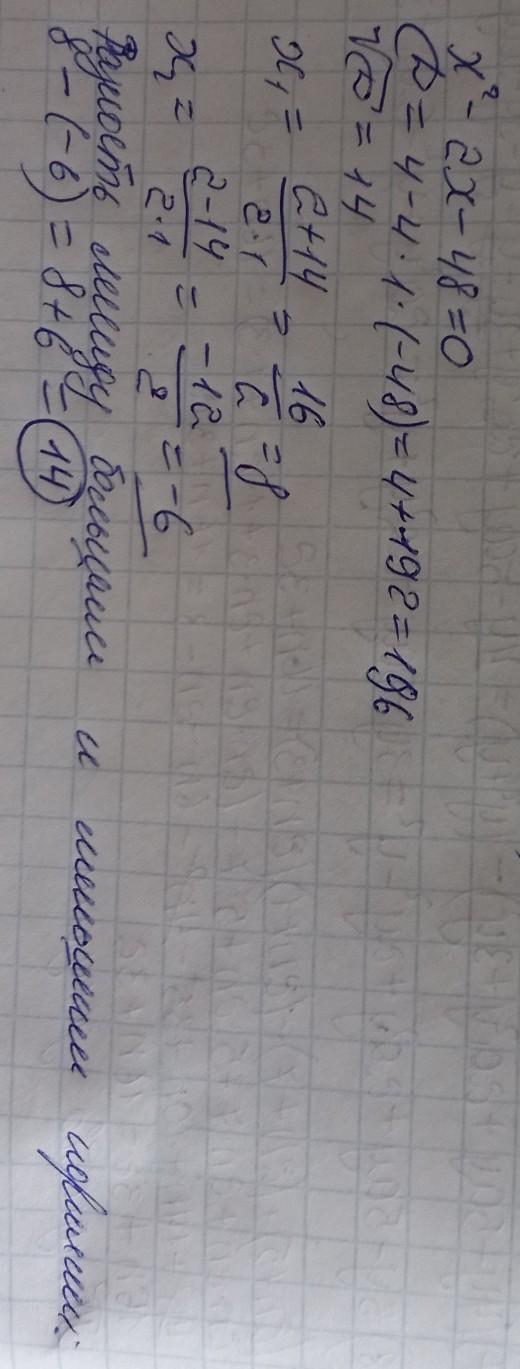 x² - 2x - 48 = 0
D = 4 - 4 · 1 · (-48) = 4 + 192 = 196
√D = 14
x₁ = (2+14)/(2·1) = 16/2 = 8
x₂ = (2-14)/(2·1) = -12/2 = -6
Разность между большим и меньшим корнями:
8 - (-6) = 8 + 6 = 14